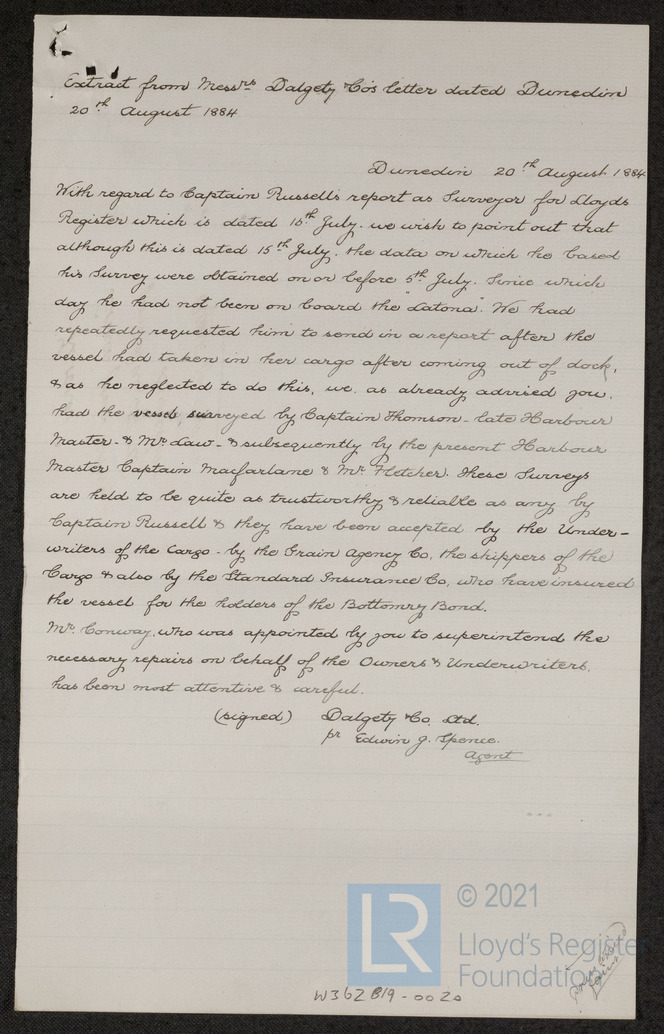 Extract from Messrs Dalgety & Co's letter dated Dunedin
20th August 1884
Dunedin 20th August 1884
With regard to Captain Russell's report as Surveyor for Lloyds
Register which is dated 15th July. we wish to point out that
although this is dated 15th July. the data on which he based
his Survey were obtained on or before 5th July. Since which
day he had not been on board the "Latona". We had
repeatedly requested him to send in a report after the
vessel had taken in her cargo after coming out of dock,
& as he neglected to do this, we. as already advised you,
had the vessel surveyed by Captain Thomson - late Harbour
Master - & Mr Law - & subsequently by the present Harbour
Master Captain Macfarlane & Mr Fletcher. These Surveys
are held to be quite as trustworthy & reliable as any by
Captain Russell & they have been accepted by the Under-
writers of the Cargo - by the Grain Agency Co, the shippers of the
Cargo & also by the Standard Insurance Co, who have insured
the vessel for the holders of the Bottomry Bond.
Mr Conway, who was appointed by you to superintend the
necessary repairs on behalf of the Owners & Underwriters,
has been most attentive & careful.
(signed) Dalgety & Co. Ltd.
pr Edwin J. Spence.
Agent
LR
© 2021
Lloyd's Register
Foundation
W362 B19-0020